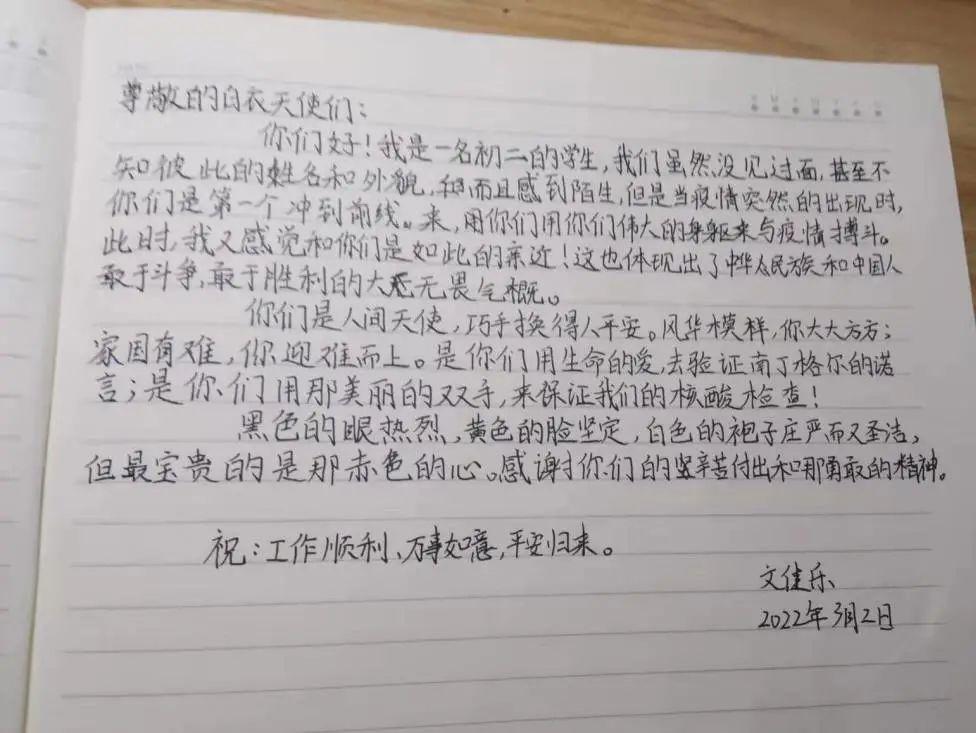 尊敬的白衣天使们：
你们好！我是一名初二的学生，我们虽然没见过面，甚至不
知彼此的姓名和外貌，而且感到陌生，但是当疫情突然的出现时，
你们是第一个冲到前线。来，用你们用你们伟大的身躯来与疫情搏斗。
此时，我又感觉和你们是如此的亲近！这也体现出了中华民族和中国人
敢于斗争，敢于胜利的大无畏气概。
你们是人间天使，巧手换得人平安。风华模样，你大大方方；
家国有难，你迎难而上。是你们用生命的爱，去验证南丁格尔的诺
言；是你们用那美丽的双手，来保证我们的核酸检查！
黑色的眼热烈，黄色的脸坚定，白色的袍子庄严而又圣洁，
但最宝贵的是那赤色的心。感谢你们的坚辛苦付出和那勇敢的精神。
祝：工作顺利、万事如意，平安归来。
文佳乐
2022年3月2日